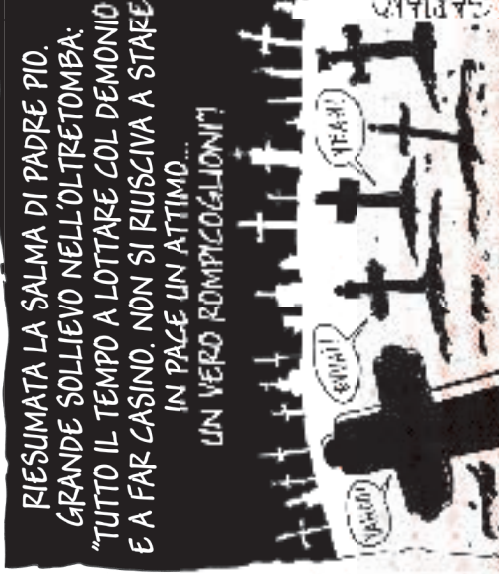 RIESUMATA LA SALMA DI PADRE PIO.
GRANDE SOLLIEVO NELL'OLTRETOMBA:
"TUTTO IL TEMPO A LOTTARE COL DEMONIO
E A FAR CASINO. NON SI RIUSCIVA A STARE
IN PACE UN ATTIMO...
UN VERO ROMPICOGLIONI"!
YEAH!